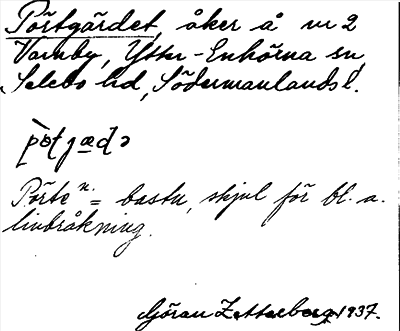 Pörtgärdet, åker å nr 2
Varnby, Ytter-Enhörna sn,
Selebo hd, Södermanlands l.
Pörte n. = bastu, skjul för bl. a.
linbråkning.
Göran Zetterberg 1937.